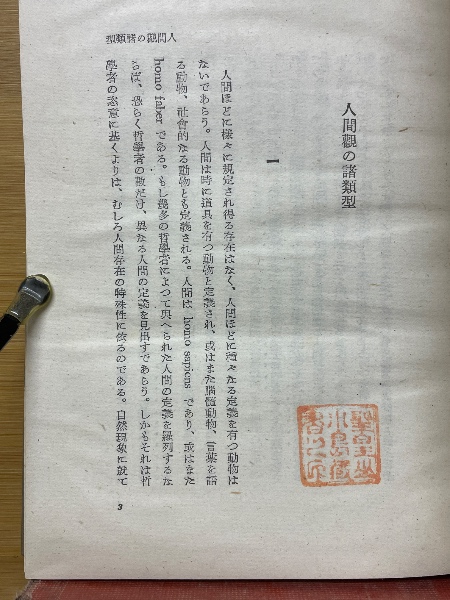 人間觀の諸類型
一
人間ほどに樣々に規定され得る存在はなく、人間ほどに種々なる定義を有つ動物は
ないであらう。人間は時に道具を有つ動物と定義され、或はまた腦髓動物、言葉を語
る動物、社會的なる動物とも定義される。人間は homo sapiens であり、或はまた
homo faber である。もし幾多の哲學者によつて與へられた人間の定義を羅列するな
らば、恐らく哲學者の數だけ、異なる人間の定義を見出すであらう。しかもそれは哲
學者の恣意に基くよりは、むしろ人間存在の特殊性に依るのである。自然現象に就て
人間觀の諸類型
3